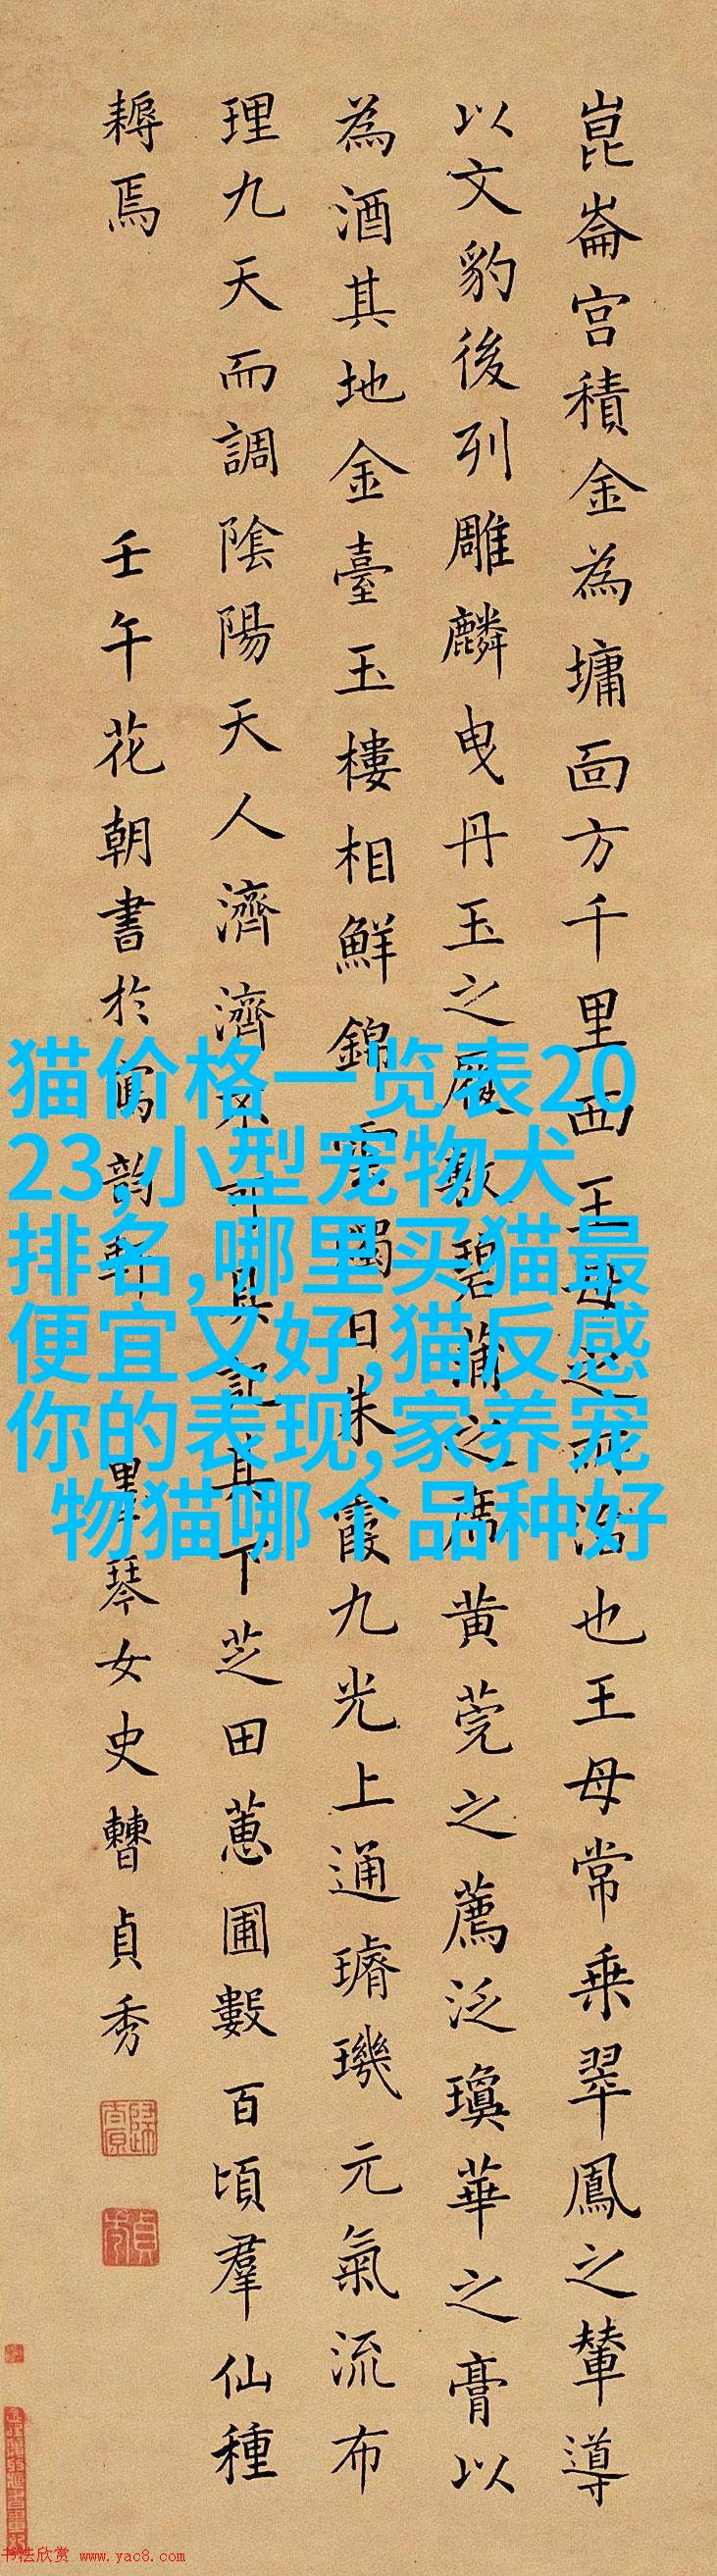 崑崙宮積金為墉面方千里西王母之所治也王母常乗翠鳳之輦導
以文豹後列雕麟曳丹玉之履敷碧蒲之席黄莞之薦泛瓊華之膏以
為酒其地金臺玉樓相鮮錦雲燭日朱霞九光上通璿璣元氣流布
理九天而調陰陽天人濟濟不可具記其下芝田蕙圃數百頃羣仙種
耨焉 壬午花朝書於寫韵軒 墨琴女史曹貞秀
猫价格一览表20
23,小型宠物犬
排名,哪里买猫最
便宜又好,猫反感
你的表现,家养宠
物猫哪个品种好
书法欣赏 www.yac8.com